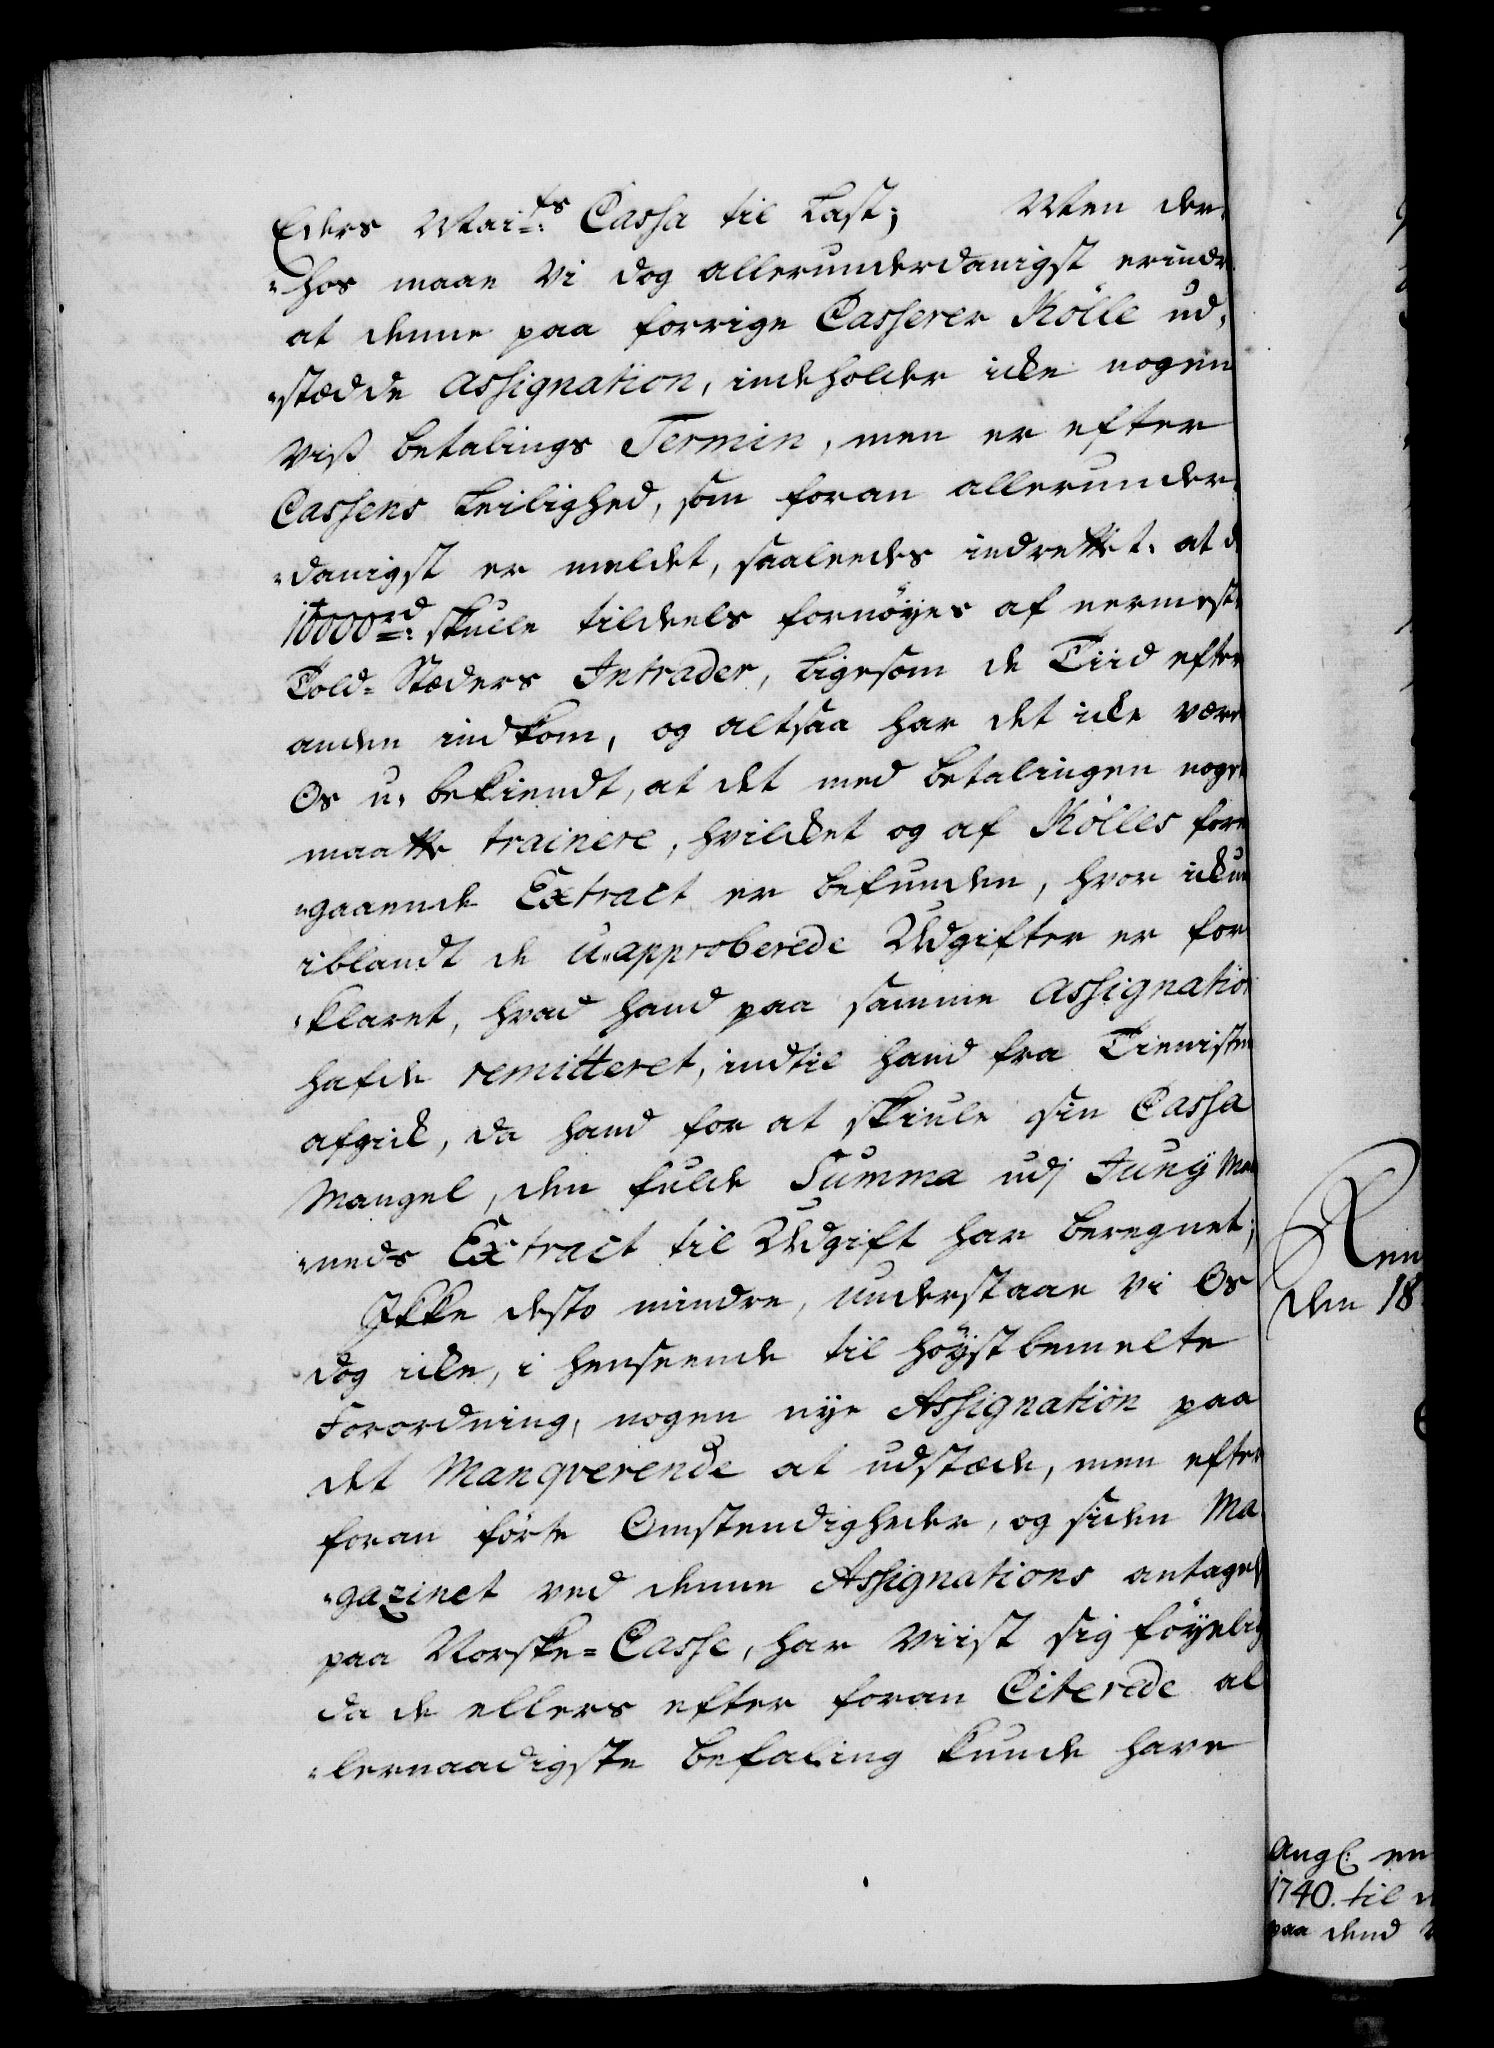 Eders Maits: Cassa til Last; Men der,
"hos maae Vi dog allerunderdanigst erindr
at denne paa forrige Casserer Kölle ud,
"stædde Assignation, indeholder icke nogen
Viß betalings Termin, men er efter
Cassens Leilighed, som foran allerunder,
"danigst er meldet, saaleedes indrettet, at d
10000 rd: skulle tildeels fornøyes af nermest
Told-Stæders Intrader, ligesom de Tiid efter
anden indkom, og altsaa har det icke være
Os u, bekiendt, at det med betalingen noget
maatte trainere, hvilcket og af Kölles fore
"gaaende Extract er befunden, hvor icku
iblandt de u,,approberede Udgifter er for
"klaret, hvad hand paa samme Assignation
hafde remitteret, indtil hand fra Tienisten
afgick, da hand for at skiule sin Cassa
Mangel, den fulde Summa udj Junÿ Maa
"neds Extract til Udgift har beregnet;
Ikke desto mindre, understaae Vi Os
dog icke, i henseende til høystbemelte
Forordning, nogen nye Assignation paa
det Manqverende at udstæde, men efter
foran førte Omstendigheder, og siden Ma
"gazinet ved denne Assignations antagel
paa Norske-Casse, har Viist sig føyelig
da de ellers efter foran Citerede al
"lernaadigste Befaling kunde have
Ren
den 18
Angl: en
1740. til
paa dend